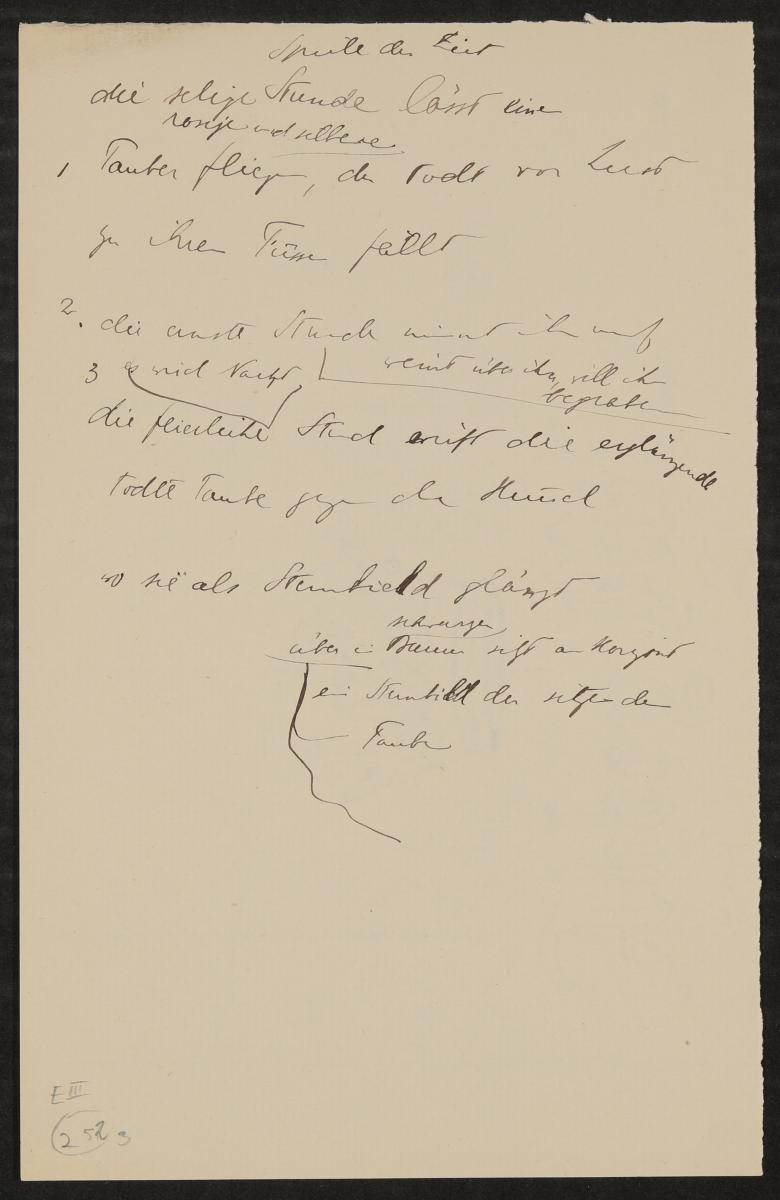 Spiele der Zeit
die selige Stunde lässt eine
rosige und silberne
1 Tauber fliegen, der todt vor Lust
zu ihren Füssen fällt
2. die ernste Stunde nimmt ihn auf
weint über ihn, will ihn
3 es wird Nacht
begraben
die feierliche Stund wirft die erglänzende
todte Taube gegen den Himmel
wo sie als Sternbield glänzt
schwarzen
über Baum am Horizont
ein Sternbild der sitzenden
Taube
E III
252 3